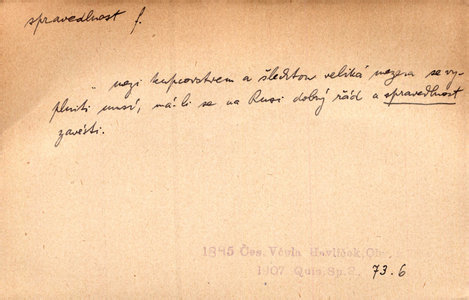 spravedlnost f.
„ mezi kupcovstvem a šlechtou veliká mezera se vy-
plniti musí, má-li se na Rusi dobrý řád a spravedlnost
zavésti.
1845 Čes. Včela Havlíček,
1907 Quis, Sp. 2, 73.6